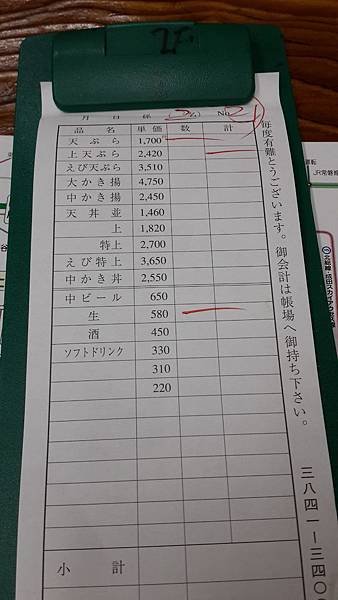 月 日 係 2名 No. 21
品名 単価 数 計
天ぷら 1,700 一
上天ぷら 2,420 一
えび天ぷら 3,510
大かき揚 4,750
中かき揚 2,450
天丼並 1,460
上 1,820
特上 2,700
えび特上 3,650
中かき丼 2,550
中ビール 650
生 580 一
酒 450
ソフトドリンク 330
310
220
小計
毎度有難とうございます。御会計は帳場へ御持ち下さい。
三八四一ー三四〇
JR常磐線
北総線・成田スカイアクセス線